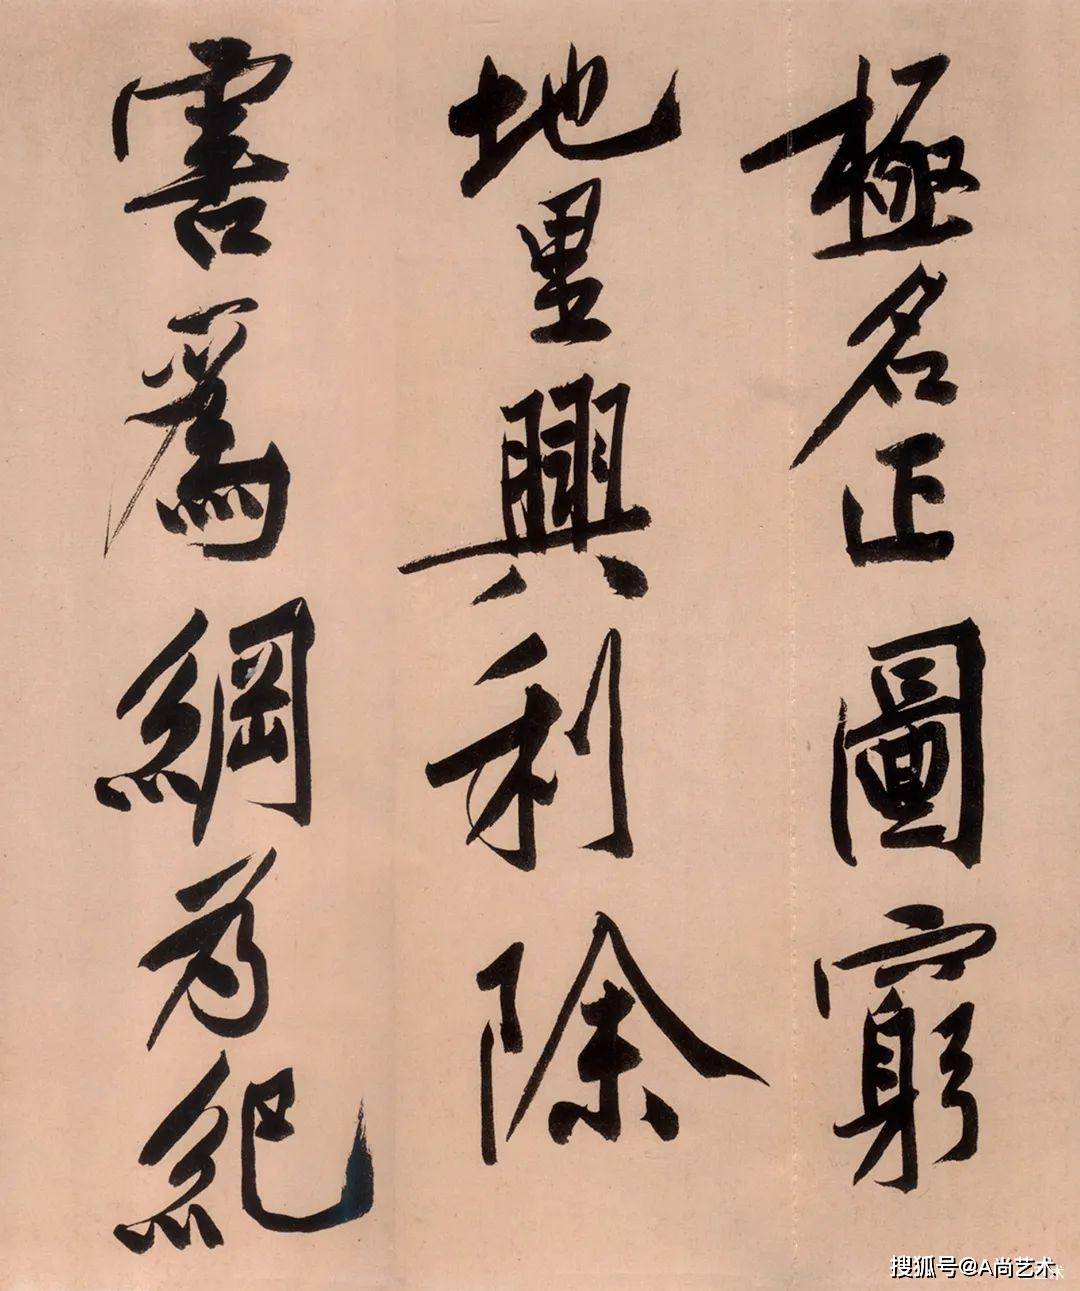 極名正圖窮
地里興利除
害爲綱為紀
搜狐号@A尚艺术